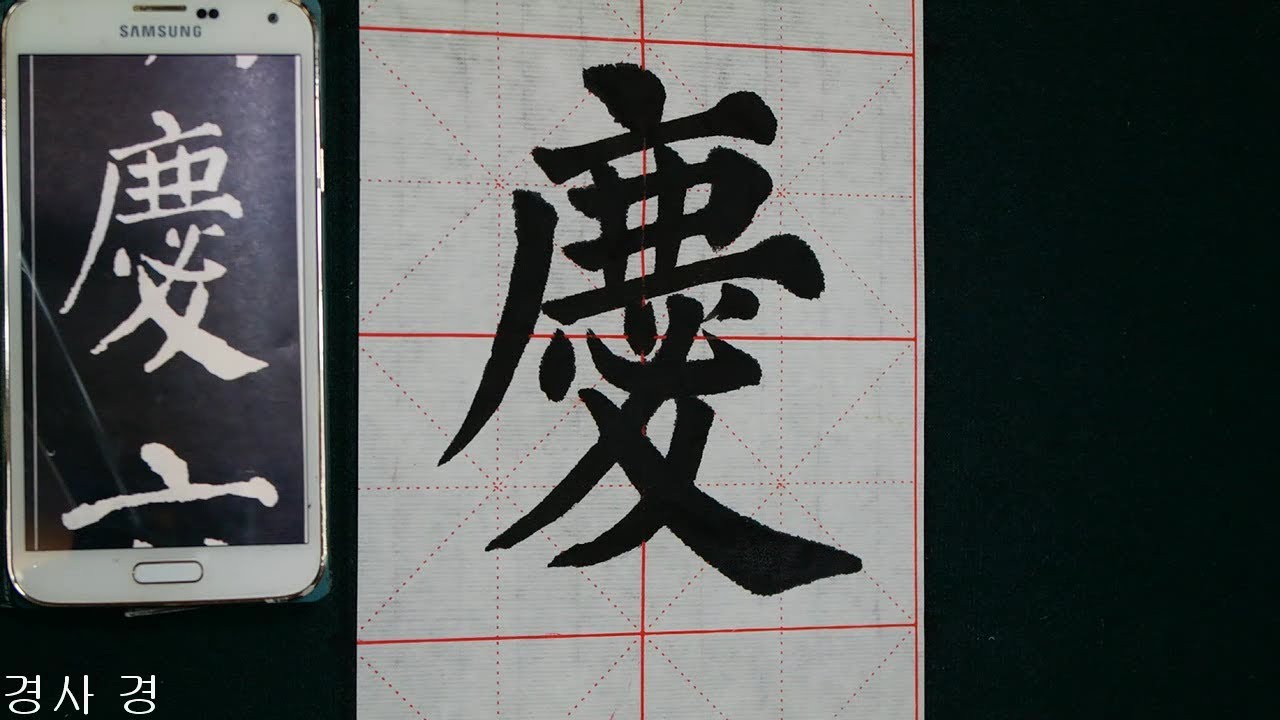 SAMSUNG
慶
慶
경사 경